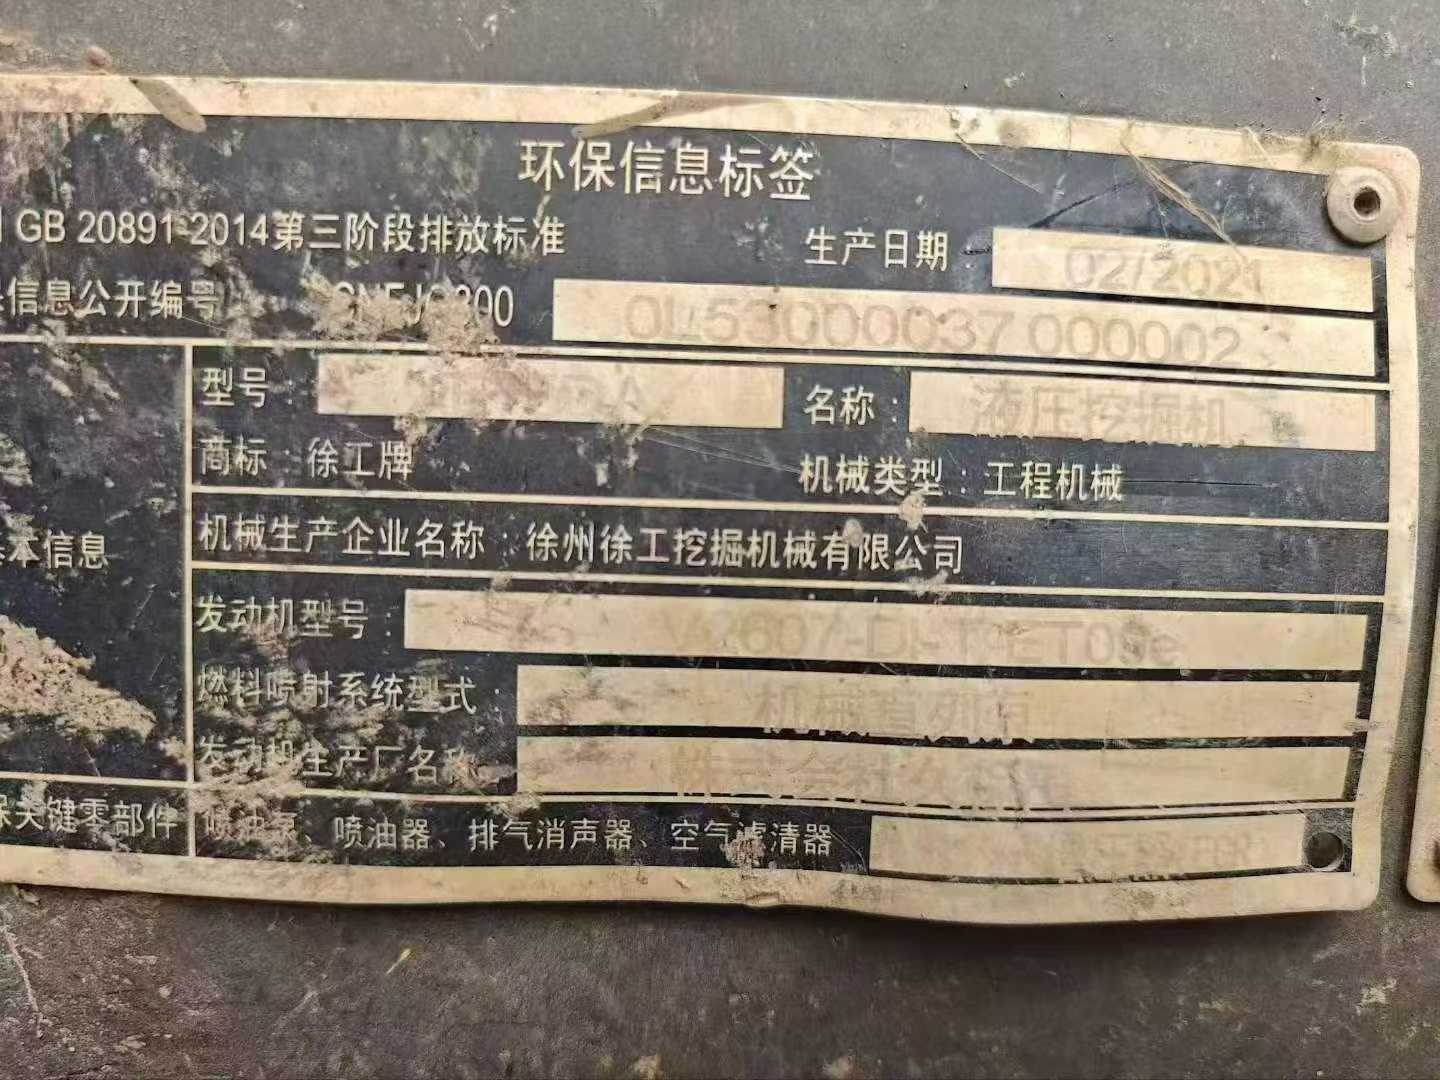 环保信息标签
GB 20891-2014第三阶段排放标准 生产日期 02/2021
信息公开编号 0L53000037 000002
型号: 名称: 液压挖掘机
商标: 徐工牌 机械类型: 工程机械
基本信息
机械生产企业名称: 徐州徐工挖掘机械有限公司
发动机型号:
燃料喷射系统型式: 机械直列泵
发动机生产厂名称: 株式会社久保田
保关键零部件 喷油泵、喷油器、排气消声器、空气滤清器